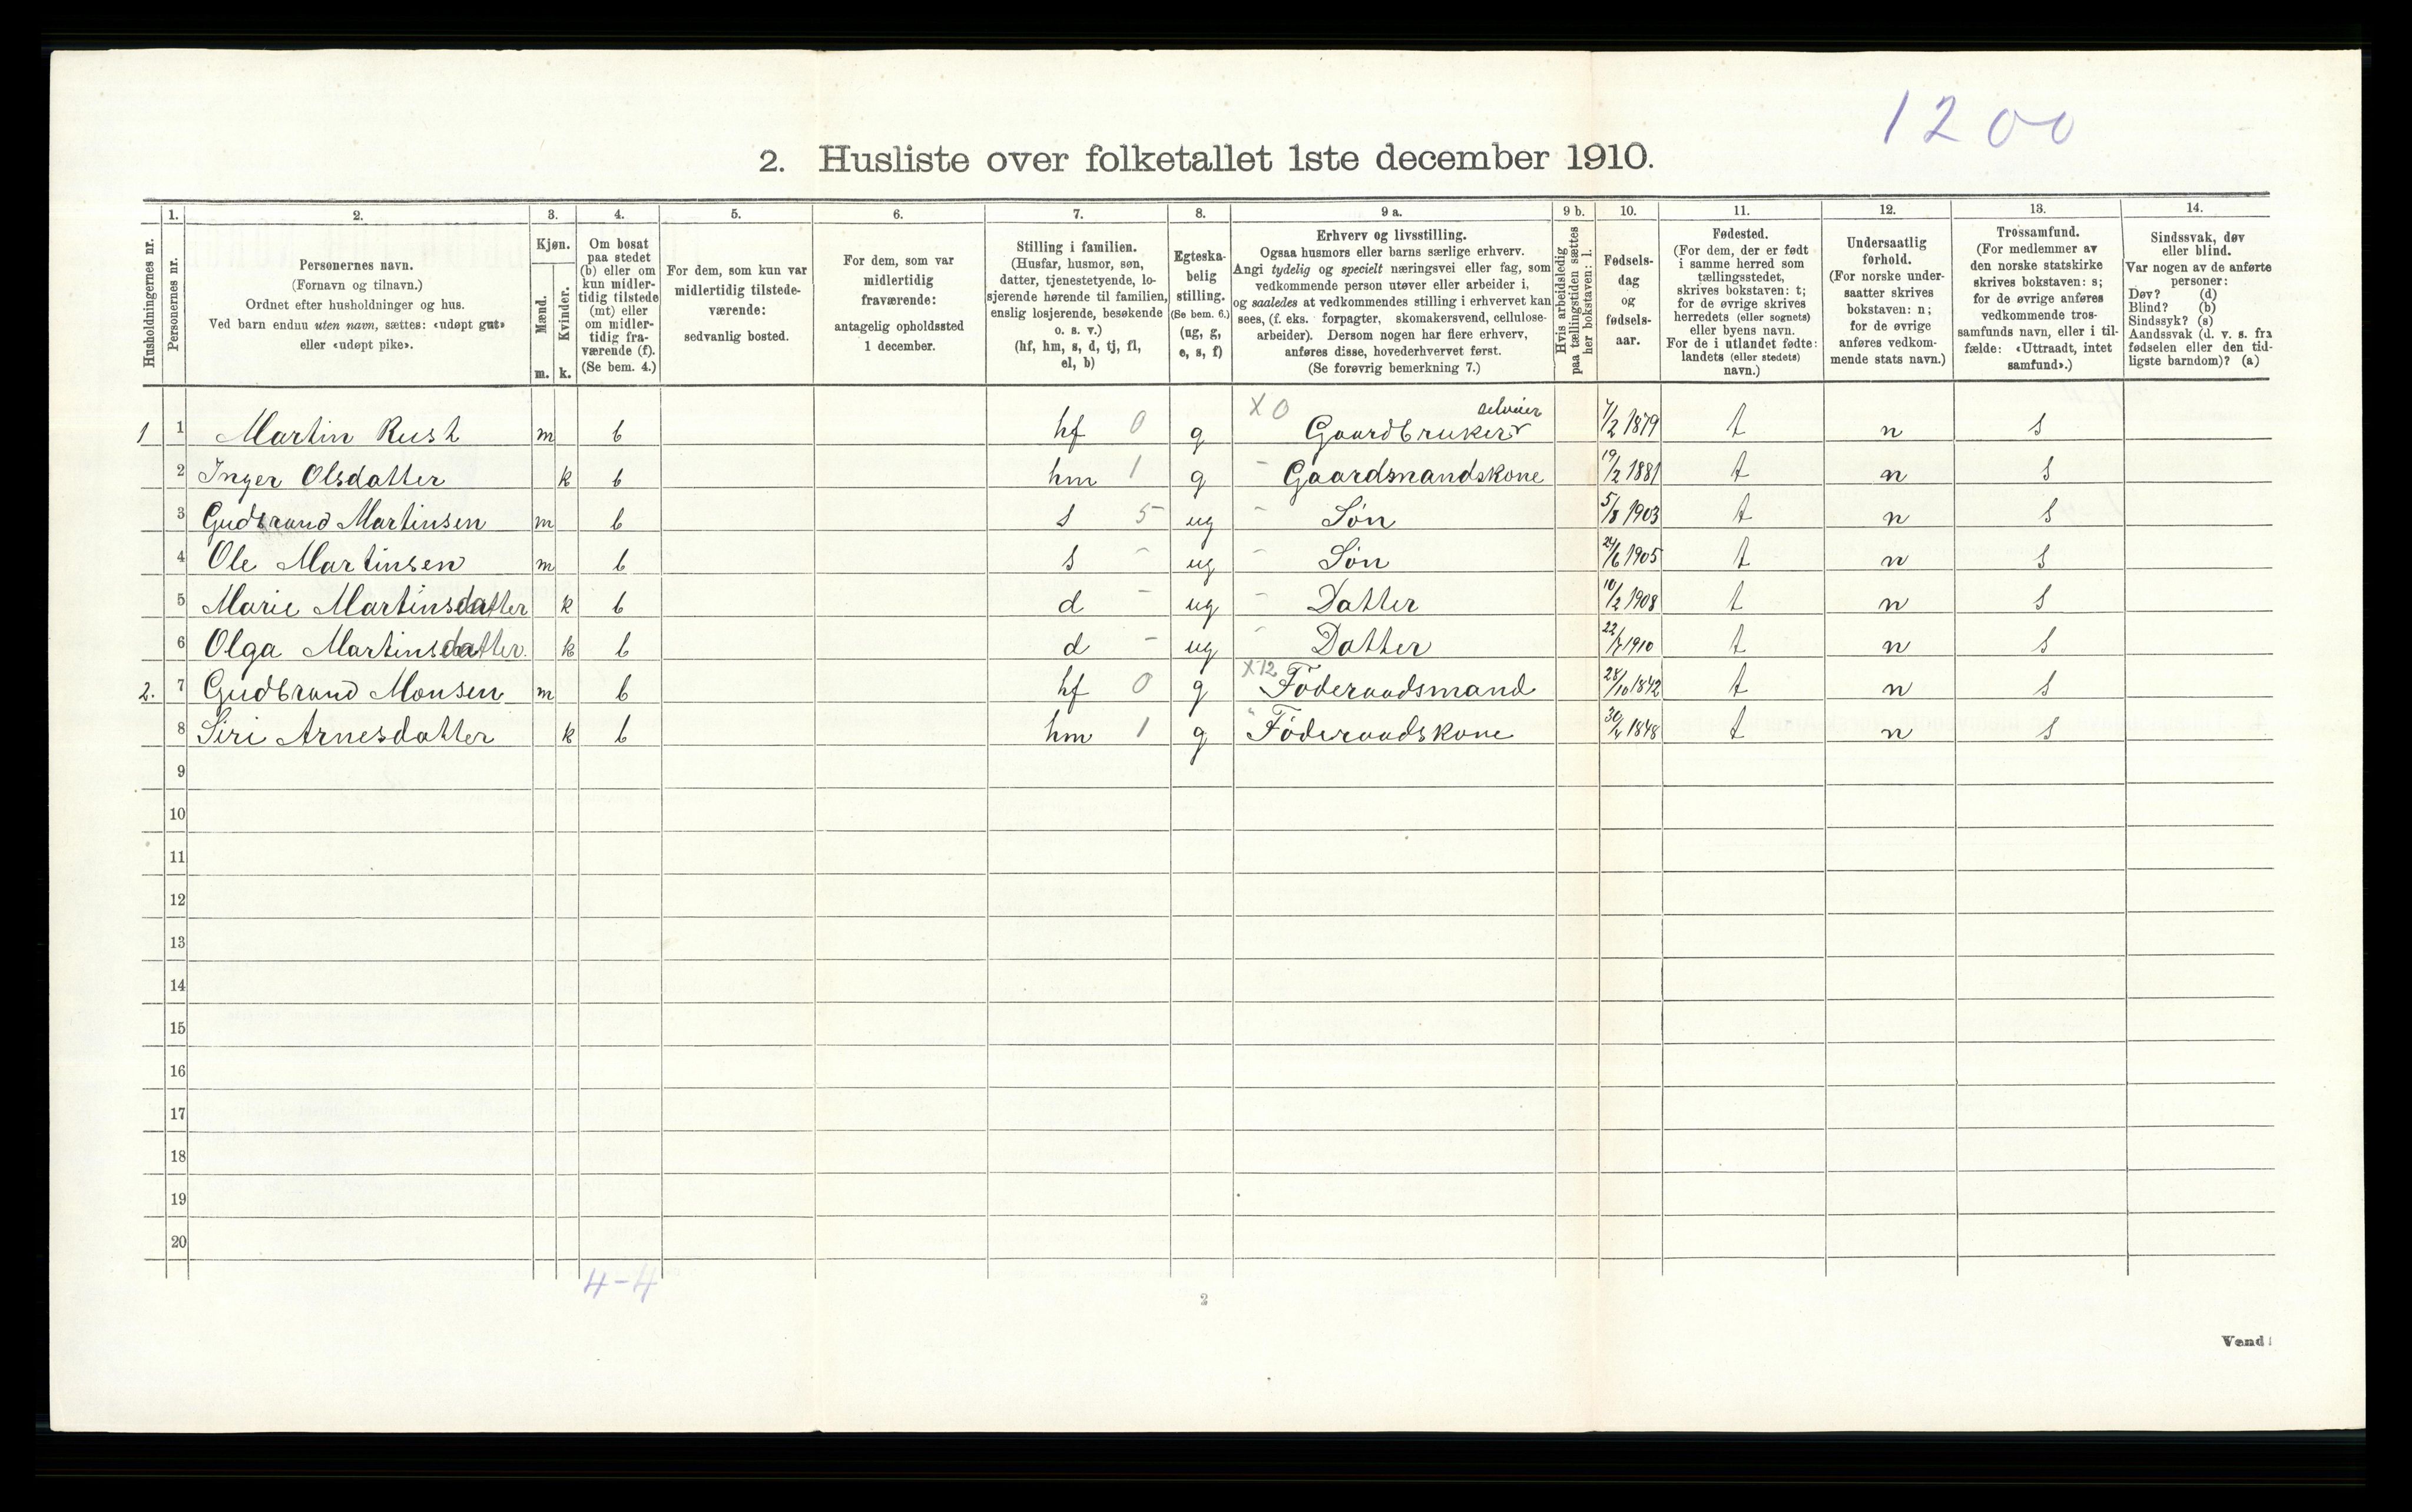 1200
2. Husliste over folketallet 1ste december 1910.
Husholdningernes nr.
1.
Personernes nr.
2.
Personernes navn.
(Fornavn og tilnavn.)
Ordnet efter husholdninger og hus.
Ved barn endnu uten navn, sættes: «udøpt gut»
eller «udøpt pike».
3.
Kjøn.
Mænd.
Kvinder.
m. k.
4.
Om bosat
paa stedet
(b) eller om
kun midler-
tidig tilstede
(mt) eller
om midler-
tidig fra-
værende (f).
(Se bem. 4.)
5.
For dem, som kun var
midlertidig tilstede-
værende:
sedvanlig bosted.
6.
For dem, som var
midlertidig
fraværende:
antagelig opholdssted
1 december.
7.
Stilling i familien.
(Husfar, husmor, søn,
datter, tjenestetyende, lo-
sjerende hørende til familien,
enslig losjerende, besøkende
o. s. v.)
(hf, hm, s, d, tj, fl,
el, b)
8.
Egteska-
belig
stilling.
(Se bem. 6.)
(ug, g,
e, s, f)
9 a.
Erhverv og livsstilling.
Ogsaa husmors eller barns særlige erhverv.
Angi tydelig og specielt næringsvei eller fag, som
vedkommende person utøver eller arbeider i,
og saaledes at vedkommendes stilling i erhvervet kan
sees, (f. eks. forpagter, skomakersvend, cellulose-
arbeider). Dersom nogen har flere erhverv,
anføres disse, hovederhvervet først.
(Se forøvrig bemerkning 7.)
9 b.
Hvis arbeidsledig
paa tællingstiden sættes
her bokstaven: l.
10.
Fødsels-
dag
og
fødsels-
aar.
11.
Fødested.
(For dem, der er født
i samme herred som
tællingsstedet,
skrives bokstaven: t;
for de øvrige skrives
herredets (eller sognets)
eller byens navn.
For de i utlandet fødte:
landets (eller stedets)
navn.)
12.
Undersaatlig
forhold.
(For norske under-
saatter skrives
bokstaven: n;
for de øvrige
anføres vedkom-
mende stats navn.)
13.
Trossamfund.
(For medlemmer av
den norske statskirke
skrives bokstaven: s;
for de øvrige anføres
vedkommende tros-
samfunds navn, eller i til-
fælde: «Uttraadt, intet
samfund».)
14.
Sindssvak, døv
eller blind.
Var nogen av de anførte
personer:
Døv? (d)
Blind? (b)
Sindssyk? (s)
Aandssvak (d. v. s. fra
fødselen eller den tid-
ligste barndom)? (a)
X 0 selveier
1 1 Martin Rust m b hf 0 g Gaardbruker 7/2 1879 t n s
2 Inger Olsdatter k b hm 1 g - Gaardsmandskone 19/2 1881 t n s
3 Gudbrand Martinsen m b s 5 ug - Søn 5/8 1903 t n s
4 Ole Martinsen m b s - ug - Søn 24/6 1905 t n s
5 Marie Martinsdatter k b d - ug - Datter 10/2 1908 t n s
6 Olga Martinsdatter k b d - ug - Datter 22/7 1910 t n s
2. 7 Gudbrand Monsen m b hf 0 g X12 Føderaadsmand 28/10 1842 t n s
8 Siri Arnesdatter k b hm 1 g " Føderaadskone 30/4 1848 t n s
9
10
11
12
13
14
15
16
17
18
19
20
4-4
2
Vend!